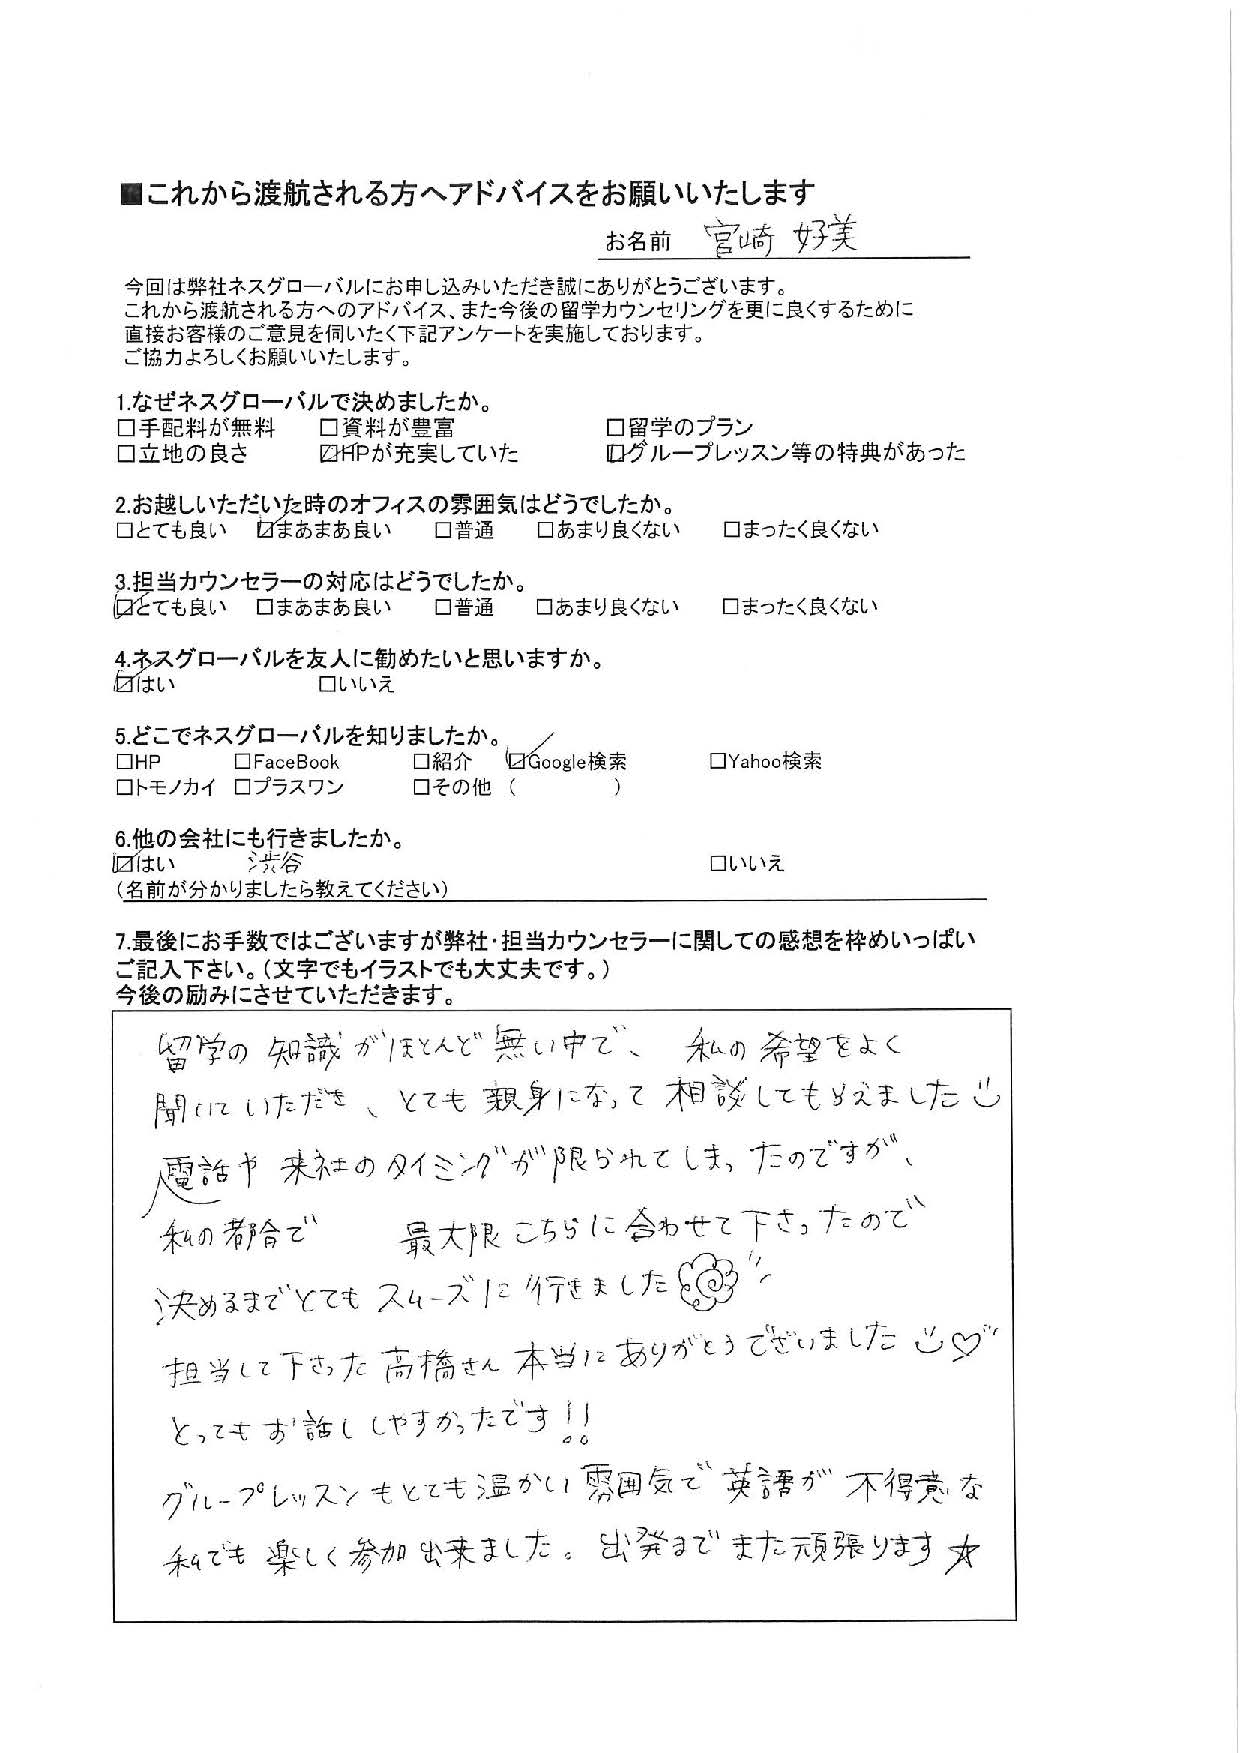 ■これから渡航される方へアドバイスをお願いいたします
お名前 宮崎 好美
今回は弊社ネスグローバルにお申し込みいただき誠にありがとうございます。
これから渡航される方へのアドバイス、また今後の留学カウンセリングを更に良くするために
直接お客様のご意見を伺いたく下記アンケートを実施しております。
ご協力よろしくお願いいたします。
1.なぜネスグローバルで決めましたか。
□手配料が無料 □資料が豊富 □留学のプラン
□立地の良さ ☑HPが充実していた ☑グループレッスン等の特典があった
2.お越しいただいた時のオフィスの雰囲気はどうでしたか。
□とても良い ☑まあまあ良い □普通 □あまり良くない □まったく良くない
3.担当カウンセラーの対応はどうでしたか。
☑とても良い □まあまあ良い □普通 □あまり良くない □まったく良くない
4.ネスグローバルを友人に勧めたいと思いますか。
☑はい □いいえ
5.どこでネスグローバルを知りましたか。
□HP □FaceBook □紹介 ☑Google検索 □Yahoo検索
□トモノカイ □プラスワン □その他 ( )
6.他の会社にも行きましたか。
☑はい 渋谷 □いいえ
(名前が分かりましたら教えてください)
7.最後にお手数ではございますが弊社・担当カウンセラーに関しての感想を枠めいっぱい
ご記入下さい。(文字でもイラストでも大丈夫です。)
今後の励みにさせていただきます。
留学の知識がほとんど無い中で、私の希望をよく
聞いていただき、とても親身になって相談してもらえました
電話や来社のタイミングが限られてしまったのですが、
私の都合で 最大限こちらに合わせて下さったので
決めるまでとてもスムーズに行きました
担当して下さった高橋さん本当にありがとうございました♡
とってもお話ししやすかったです!!
グループレッスンもとても温かい雰囲気で英語が不得意な
私でも楽しく参加出来ました。出発までまた頑張ります☆